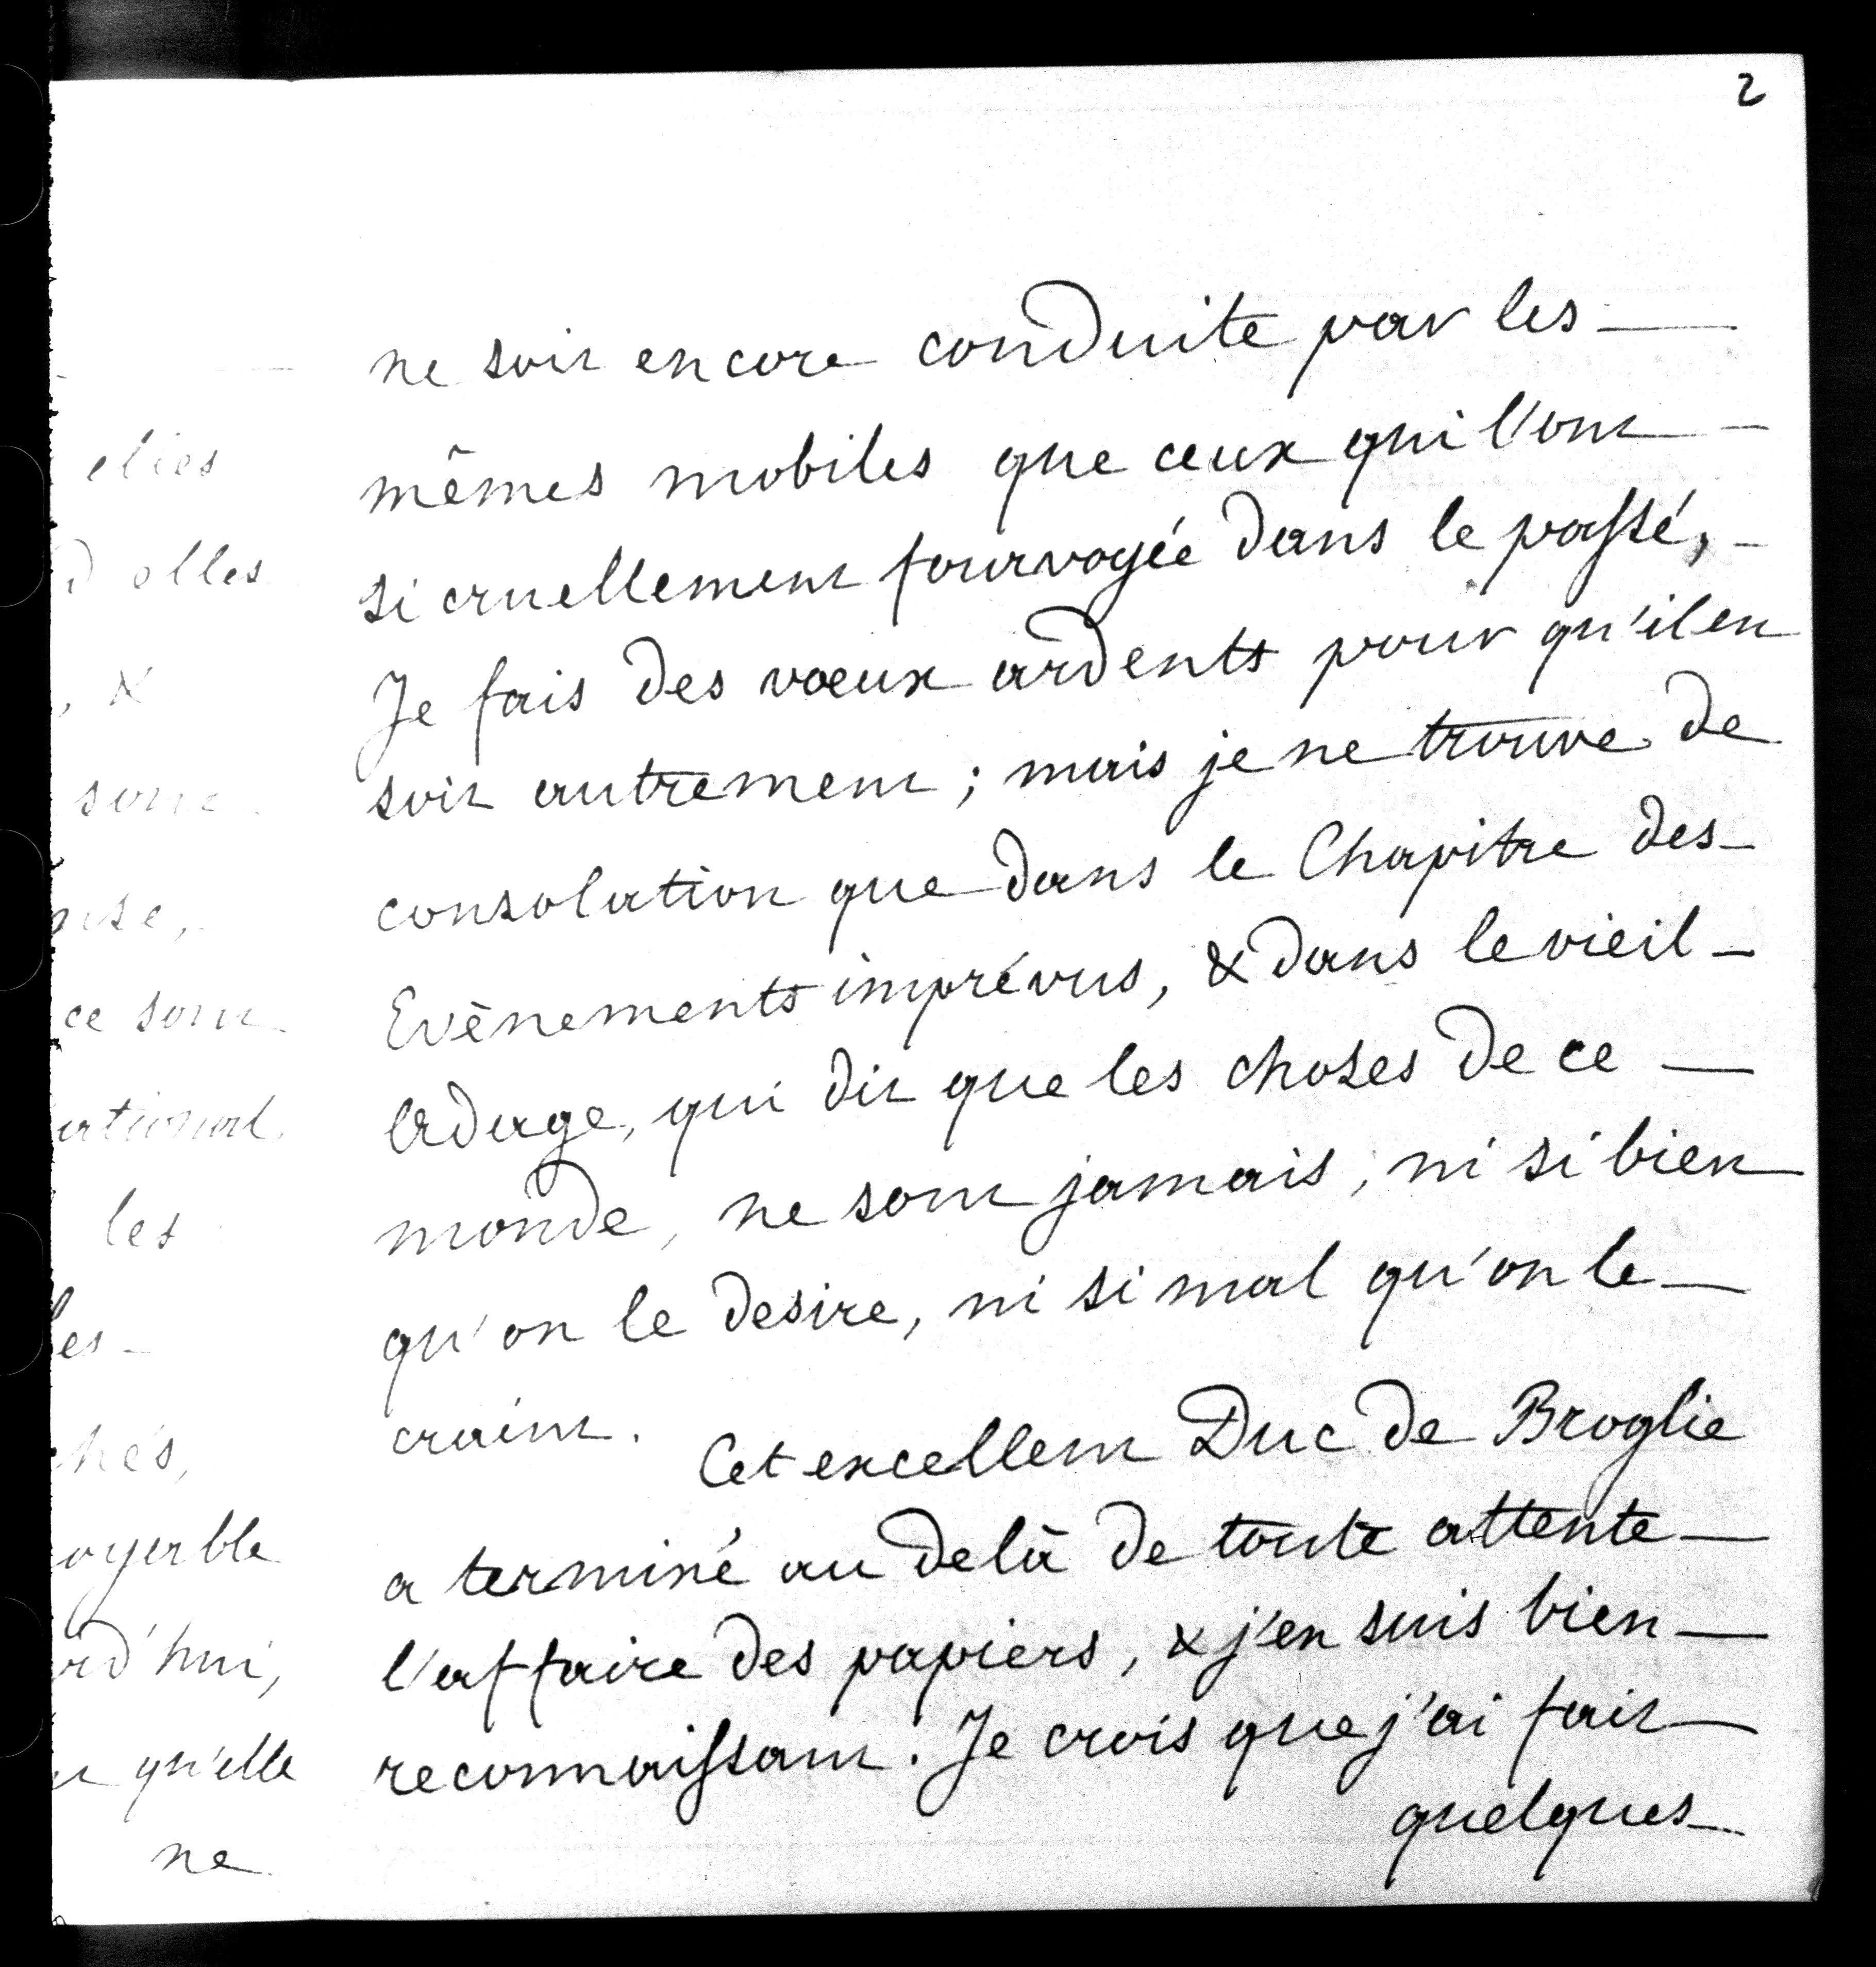 2
ne soit encore conduite par les
mêmes mobiles que ceux qui l'ont
si cruellement fourvoyée dans le passé,
Je fais des vœux ardents pour qu'il en
soit autrement; mais je ne trouve de
consolation que dans le Chapitre des
Evènements imprévus, & dans le vieil
adage, qui dit que les choses de ce
monde, ne sont jamais, ni si bien
qu'on le desire, ni si mal qu'on le
craint.
Cet excellent Duc de Broglie
a terminé au delà de toute attente
l'affaire des papiers, & j'en suis bien
reconnaissant. Je crois que j'ai fait
quelques
elles
&
sont
ce sont
les
qu'elle
ne